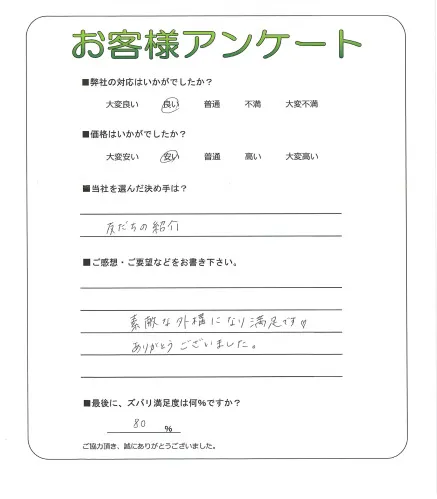 お客様アンケート
■弊社の対応はいかがでしたか？
大変良い 良い 普通 不満 大変不満
■価格はいかがでしたか？
大変安い 安い 普通 高い 大変高い
■当社を選んだ決め手は？
友だちの紹介
■ご感想・ご要望などをお書き下さい。
素敵な外構になり満足です♡
ありがとうございました。
■最後に、ズバリ満足度は何％ですか？
80 ％
ご協力頂き、誠にありがとうございました。